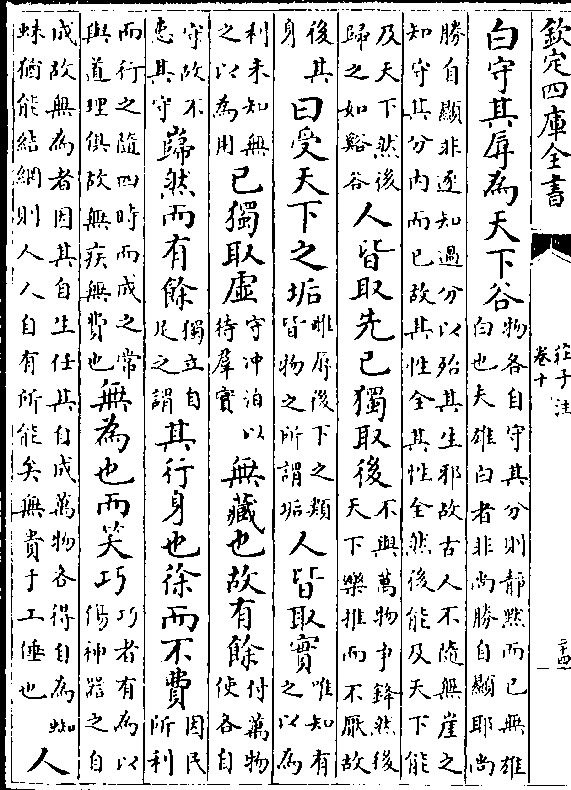 欽定四庫全書
莊子注
卷十
白守其辱為天下谷物各自守其分則静黙而已無雄白也夫雄白者非尚勝自顯耶尚
勝自顯非逐知過分以殆其生邪故古人不隨無崖之知守其分内而已故其性全其性全然後能及天下能
及天下然後歸之如谿谷人皆取先己獨取後不與萬物争鋒然後天下樂推而不厭故
後其身曰受天下之垢雌辱後下之類皆物之所謂垢人皆取實唯知有之以為
利未知無之以為用已獨取虛守冲泊以待羣實無藏也故有餘付萬物使各自
守故不患其守巋然而有餘獨立自足之謂其行身也徐而不費因民所利
而行之隨四時而成之常與道理俱故無疾無費也無為也而笑巧巧者有為以傷神器之自
成故無為者因其自生任其自成萬物各得自為蜘蛛猶能結網則人人自有所能矣無貴于工倕也人